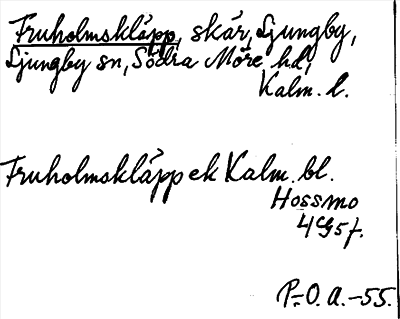 Fruholmskläpp, skär, Ljungby,
Ljungby sn, Södra Möre hd,
Kalm. l.
Fruholmskläpp ek Kalm. bl.
Hossmo
4G5f.
P.O.A.-55.